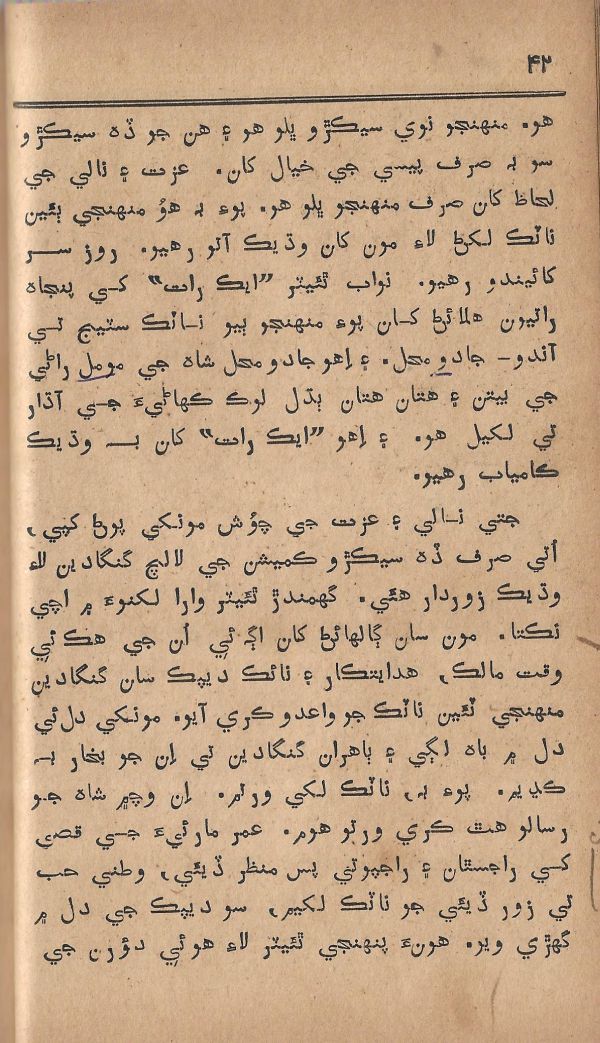 ۴۲
هو. منهنجو نوي سيڪڙو ڀلو هو ۽ هن جو ڏه سيڪڙو
سو بہ صرف پيسي جي خيال کان. عزت ۽ نالي جي
لحاظ کان صرف منهنجو ڀلو هو. پوء بہ هوُ منهنجي ٻئين
ناٽڪ لکڻ لاء مون کان وڌيڪ آتو رهيو. روز سر
کائيندو رهيو. نواب ٿئيٽر ”ايڪ رات“ کي پنجاه
راتيون هلائڻ کان پوء منهنجو ٻيو ناٽڪ سٽيج تي
آندو- جادو محل. ۽ اِهو جادو محل شاه جي مومل راڻي
جي بيتن ۽ هتان هتان ٻڌل لوڪ ڪهاڻيءَ جي آڌار
تي لکيل هو. ۽ اِهو ”ايڪ رات“ کان بہ وڌيڪ
ڪامياب رهيو.
جتي نالي ۽ عزت جي چوُش مونکي پوڻ کپي،
اُتي صرف ڏه سيڪڙو ڪميشن جي لالچ گنگادين لاء
وڌيڪ زوردار هئي. گهمندڙ ٿئيٽر وارا لکنوءَ ۾ اچي
نڪتا. مون سان ڳالهائڻ کان اڳ ئي اُن جي هڪ ئي
وقت مالڪ، هدايتڪار ۽ نائڪ ديپڪ سان گنگادين
منهنجي ٽئين ناٽڪ جو واعدو ڪري آيو. مونکي دل ئي
دل ۾ باه لڳي ۽ ٻاهران گنگادين تي اِن جو بخار بہ
ڪڍيم. پوء بہ، ناٽڪ لکي ورتم. اِن وچ۾ شاه جو
رسالو هٿ ڪري ورتو هوم. عمر مارئيءَ جي قصي
کي راجستان ۽ راجپوتي پس منظر ڏيئي، وطني حب
تي زور ڏيئي جو ناٽڪ لکيم، سو ديپڪ جي دل ۾
گهڙي ويو. هونءَ پنهنجي ٿئيٽر لاء هو ئي دؤرن جي